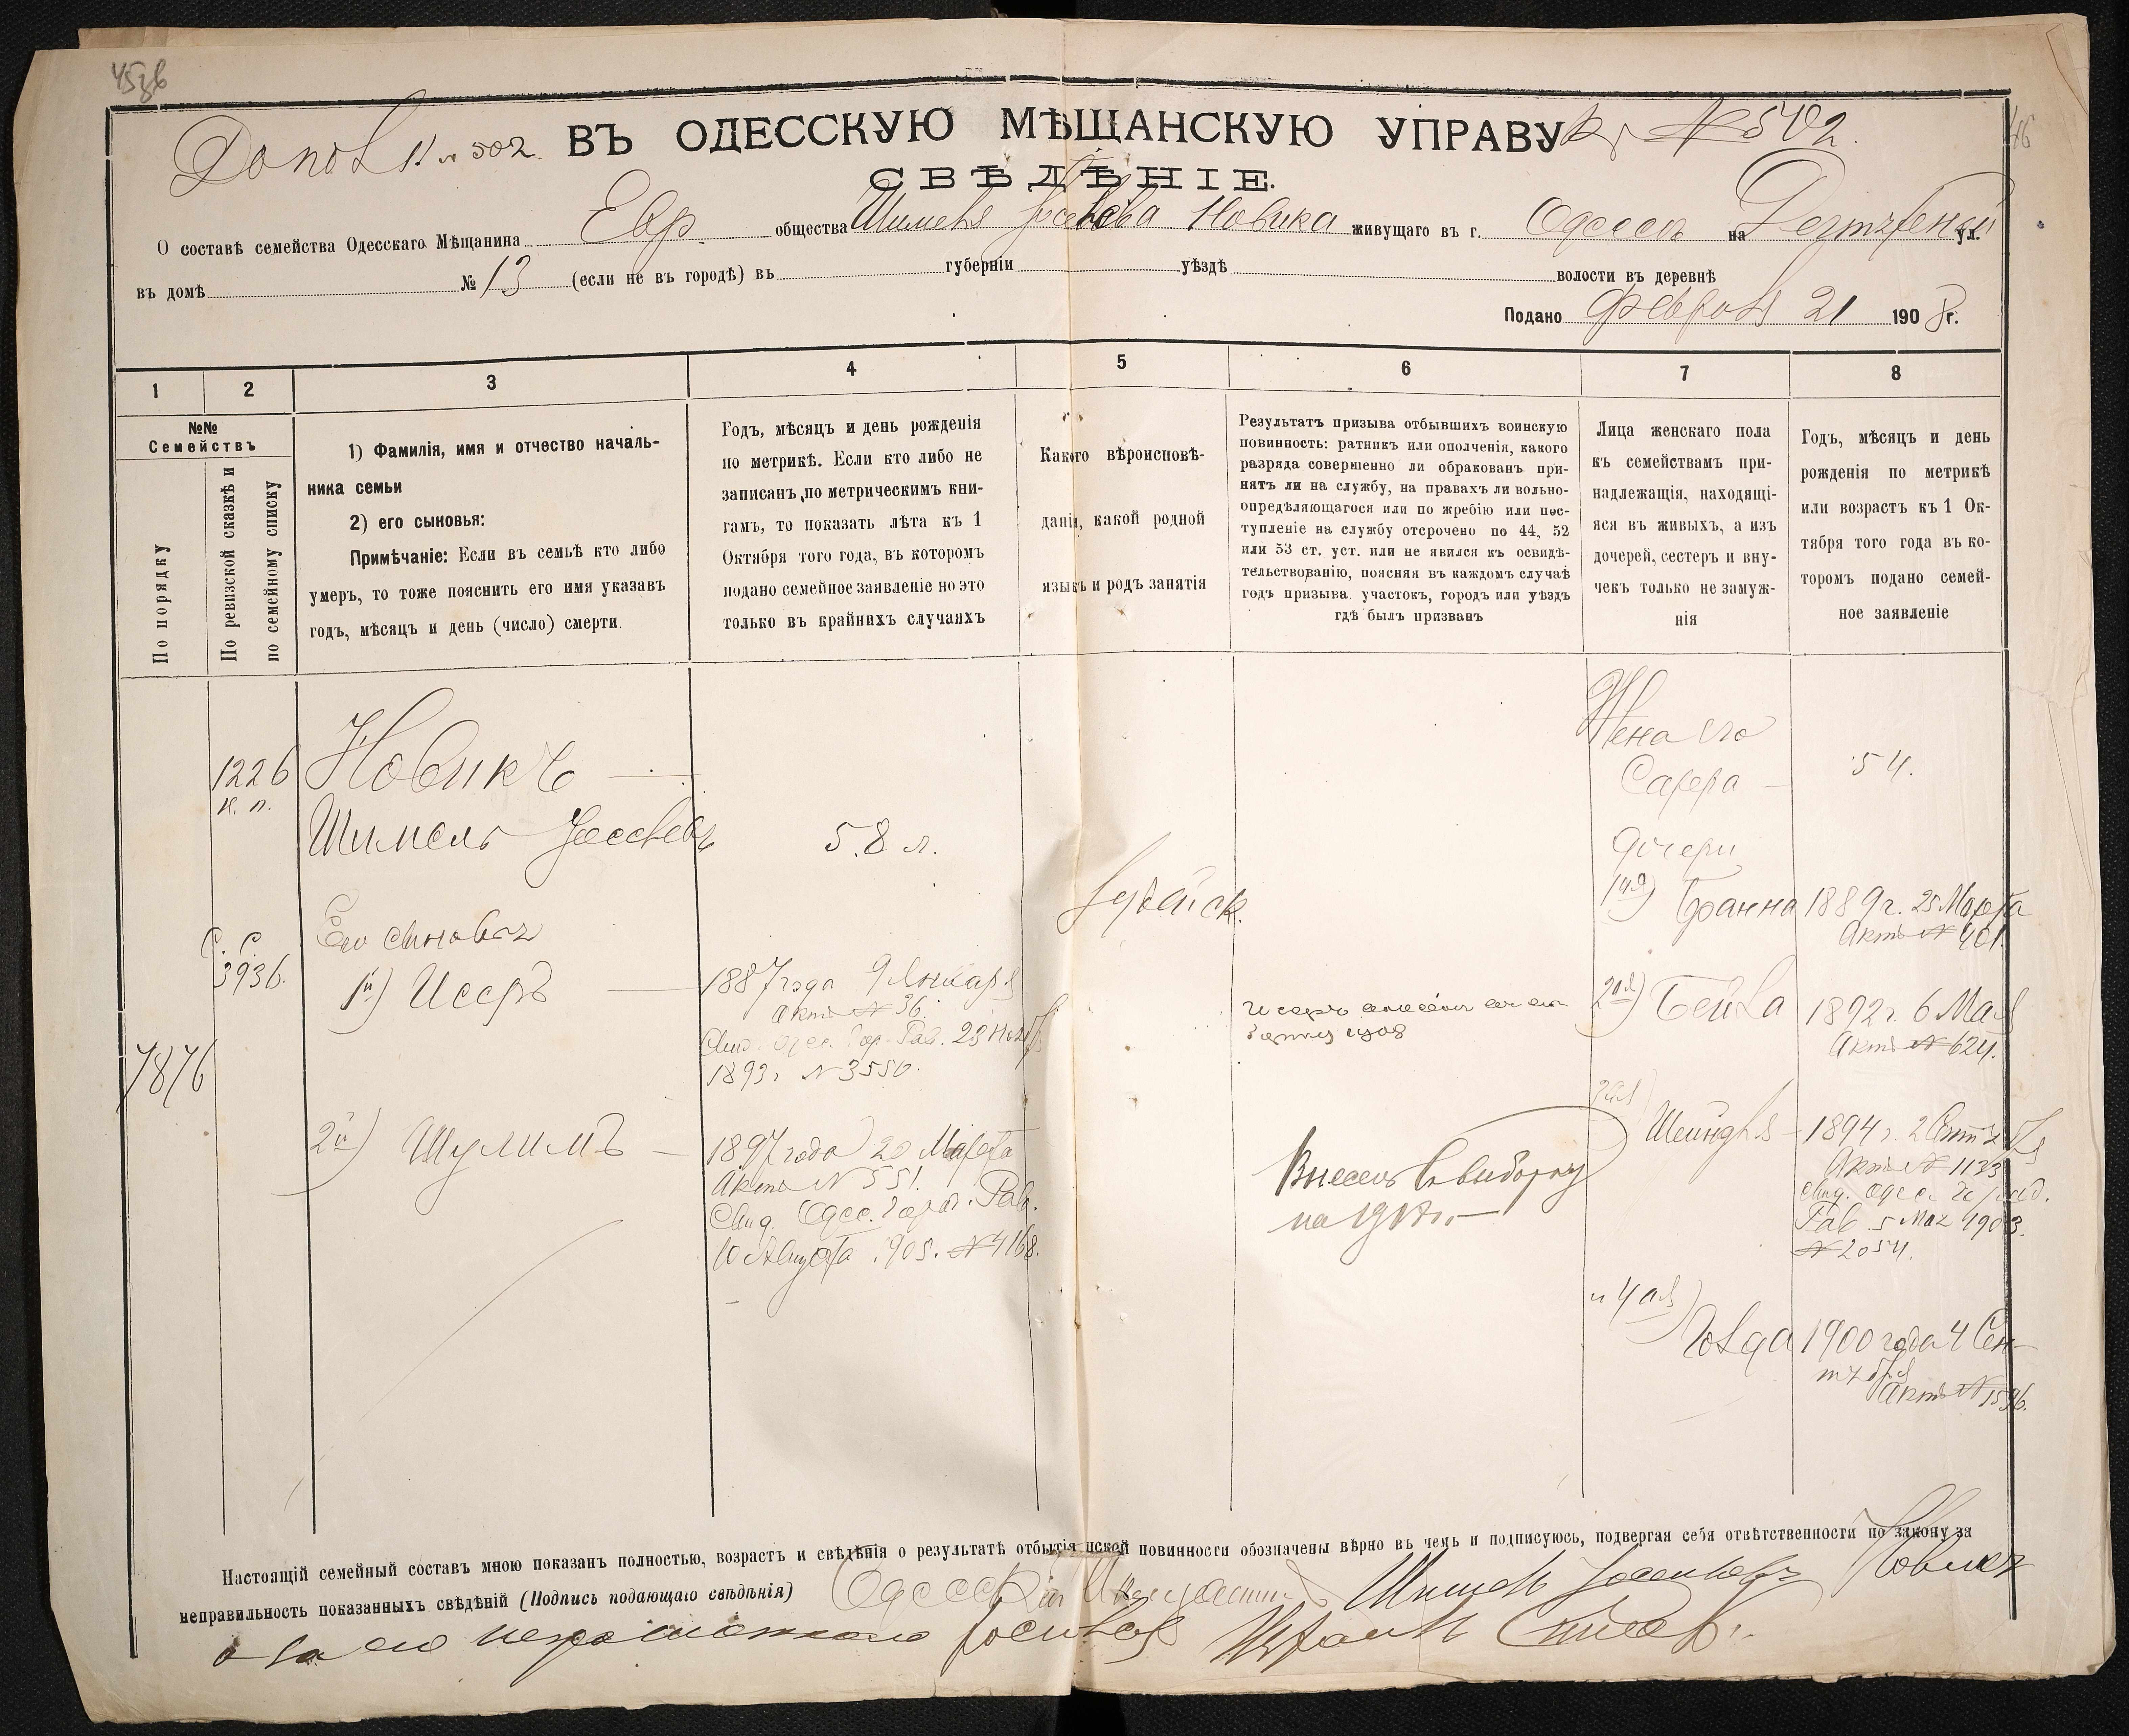 Допол. к № 502.
ВЪ ОДЕССКУЮ МѢЩАНСКУЮ УПРАВУ
№ 502.
СВѢДѢНІЕ.
О составѣ семейства Одесскаго Мѣщанина Евр общества Шимеля Іосева Новика живущаго въ г. Одессѣ на ул.
въ домѣ № 13 (если не въ городѣ) въ губерніи уѣздѣ волости въ деревнѣ
Подано Февраля 21 1908 г.
1 2 3 4 5 6 7 8
№№
Семействъ
По порядку
По ревизской сказкѣ и
по семейному списку
1) Фамилія, имя и отчество началь-
ника семьи
2) его сыновья:
Примѣчаніе: Если въ семьѣ кто либо
умеръ, то тоже пояснить его имя указавъ
годъ, мѣсяцъ и день (число) смерти.
Годъ, мѣсяцъ и день рожденія
по метрикѣ. Если кто либо не
записанъ по метрическимъ кни-
гамъ, то показать лѣта къ 1
Октября того года, въ которомъ
подано семейное заявленіе но это
только въ крайнихъ случаяхъ
Какого вѣроисповѣ-
данія, какой родной
языкъ и родъ занятія
Результатъ призыва отбывшихъ воинскую
повинность: ратникъ или ополченія, какого
разряда совершенно ли обракованъ при-
нятъ ли на службу, на правахъ ли вольно-
опредѣляющагося или по жребію или пос-
тупленіе на службу отсрочено по 44, 52
или 53 ст. уст. или не явился къ освидѣ-
тельствованію, поясняя въ каждомъ случаѣ
годъ призыва. участокъ, городъ или уѣздъ
гдѣ былъ призванъ
Лица женскаго пола
къ семействамъ при-
надлежащія, находящі-
яся въ живыхъ, а изъ
дочерей, сестеръ и вну-
чекъ только не замуж-
нія
Годъ, мѣсяцъ и день
рожденія по метрикѣ
или возрастъ къ 1 Ок-
тября того года въ ко-
торомъ подано семей-
ное заявленіе
7876
1226
к. п.
С. С.
3936.
Новикъ
Шимель Іосевъ
Его сыновья
1й) Исеръ
2й) Шулимъ
58 л.
1887 года 9 Января
актъ № 36.
Свид. Одес. Гор. Рав. 23
1893 г. № 3550.
1897 года 20 Марта
Актъ № 551.
Свид. Одес. Город. Рав.
10 Августа 905. № 4168.
Іудейск.
Исеръ
1908
Внесенъ въ выборку
Жена его
Сарра
Дочери
1ая) Бранна
2ая) Бейла
3ая) Шейндля
и 4ая) Голда
54.
1889 г. 25 Марта
Актъ № 401.
1892 г. 6 Мая
Актъ № 624.
1894 г. 2 Сентября
Актъ № 1133
Свид. Одес. Город.
Рав. 5 Мая 1903.
№ 2054.
1900 года 4 Сен-
тября
Актъ № 1596.
Настоящій семейный составъ мною показанъ полностью, возрастъ и свѣдѣнія о результатѣ отбытія нской повинности обозначены вѣрно въ чемъ и подписуюсь, подвергая себя отвѣтственности по закону за
неправильность показанныхъ свѣдѣній (Подпись подающаго свѣдѣнія) Одесскій Мещанинъ Шимель Новикъ
а за его неграмотного